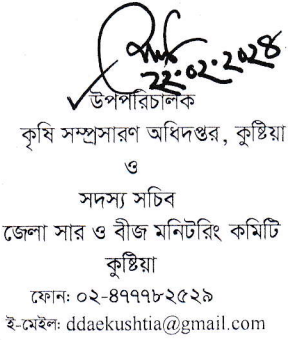 ২২.০২.২০২৪
উপপরিচালক
কৃষি সম্প্রসারণ অধিদপ্তর, কুষ্টিয়া
ও
সদস্য সচিব
জেলা সার ও বীজ মনিটরিং কমিটি
কুষ্টিয়া
ফোন: ০২-৪৭৭৭৮২৫২৯
ই-মেইল: ddaekushtia@gmail.com